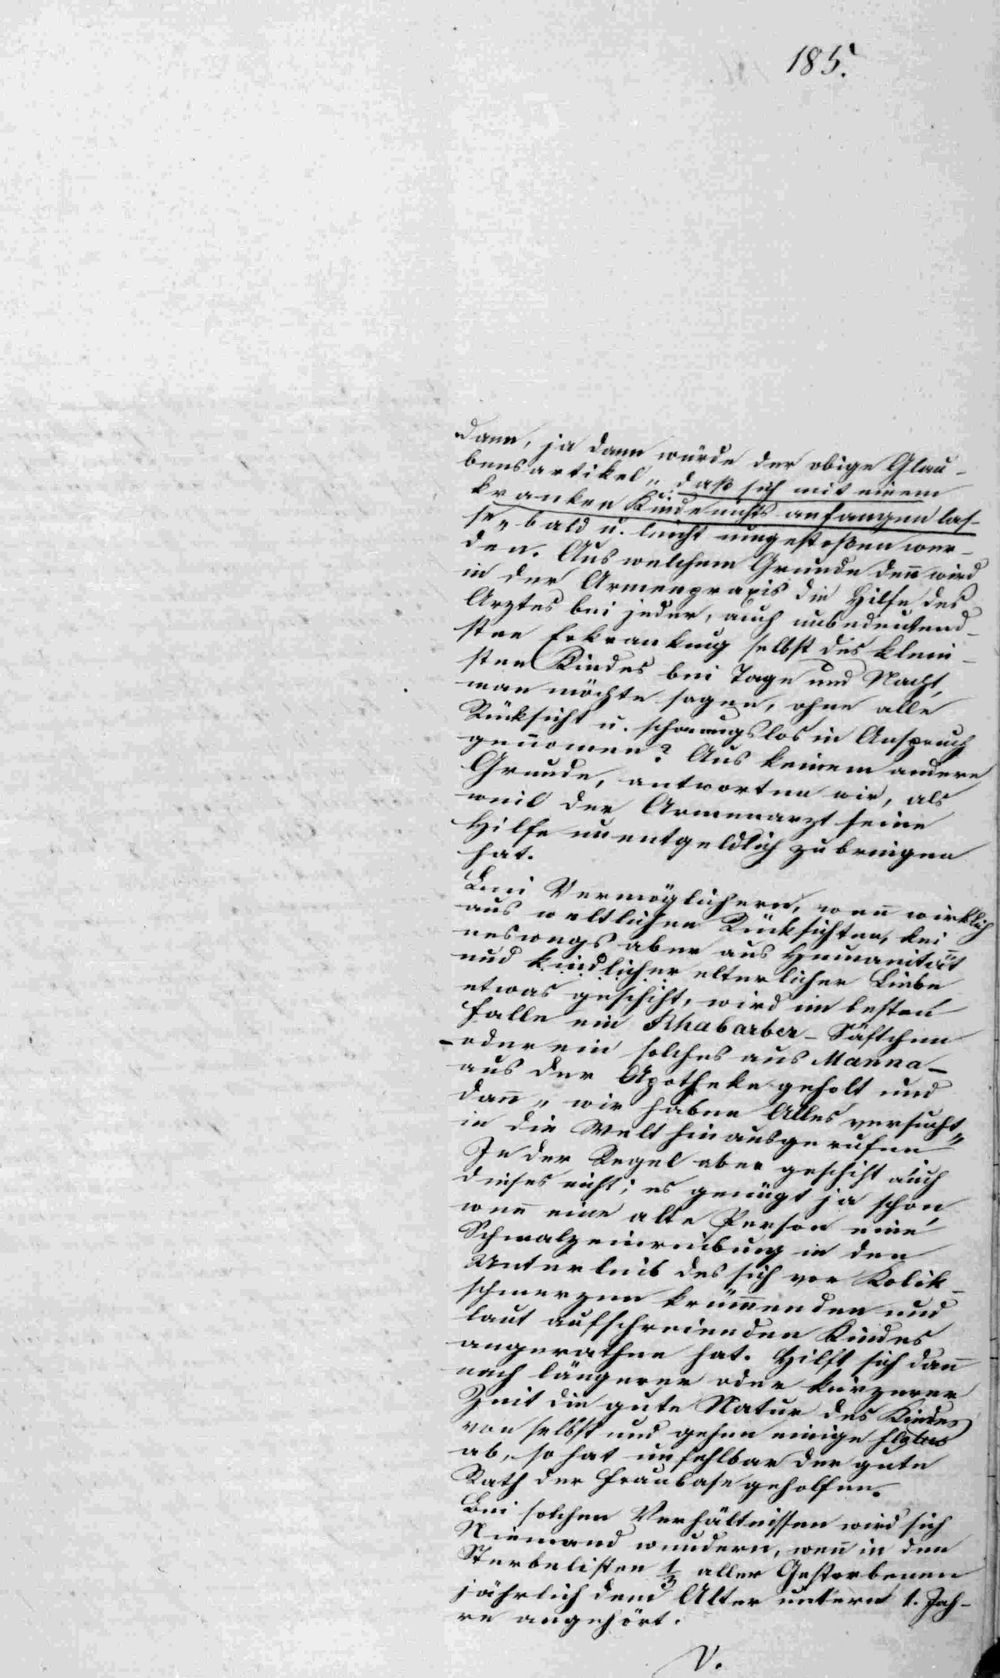 185.
dann, ja dann würde der obige Glau-
bensartikel „daß sich mit einem
kranken Kinde nichts anfangen las-
se“ bald u. leicht umgestoßen wer-
den. Aus welchem Grunde deñ wird
in der Armenpraxis die Hilfe des
Arztes bei jeder, auch unbedeutend-
sten Erkrankung selbst des klein-
sten Kindes bei Tage und Nacht,
man möchte sagen, ohne alle
Rücksicht u. schonungslos in Anspruch
genomen? Aus keinem andern
Grunde, antworten wir, als
weil der Armenarzt seine
Hilfe unentgeldlich zu bringen
hat.
Bei Vermöglichern, wenn wirklich
aus weltlichen Rücksichten, kei-
neswegs aber aus Humanität
und kindlicher elterlicher Liebe
etwas geschiht, wird im besten
Falle ein Rhabarber-Säftchen
- oder ein solches aus Manna -
aus der Apotheke geholt und
dañ „wir haben Alles versucht“
in die Welt hinausgerufen.
In der Regel aber geschiht auch
dieses nicht; es genügt ja schon,
weñ eine alte Person eine
Schmalzeinreibung in den
Unterleib des sich vor Kolik-
schmerzen krüm̄enden und
laut aufschreienden Kindes
angerathen hat. Hilft sich dañ
nach längerer oder kürzerer
Zeit die gute Natur des Kindes
von selbst und gehen einige flatus
ab, so hat unfehlbar der gute
Rath der Fraubase geholfen.
Bei solchen Verhältnissen wird sich
Niemand wundern, weñ in den
Sterbelisten 1/3 aller Gestorbenen
jährlich dem Alter unterm 1. Jah-
re angehört.
V.